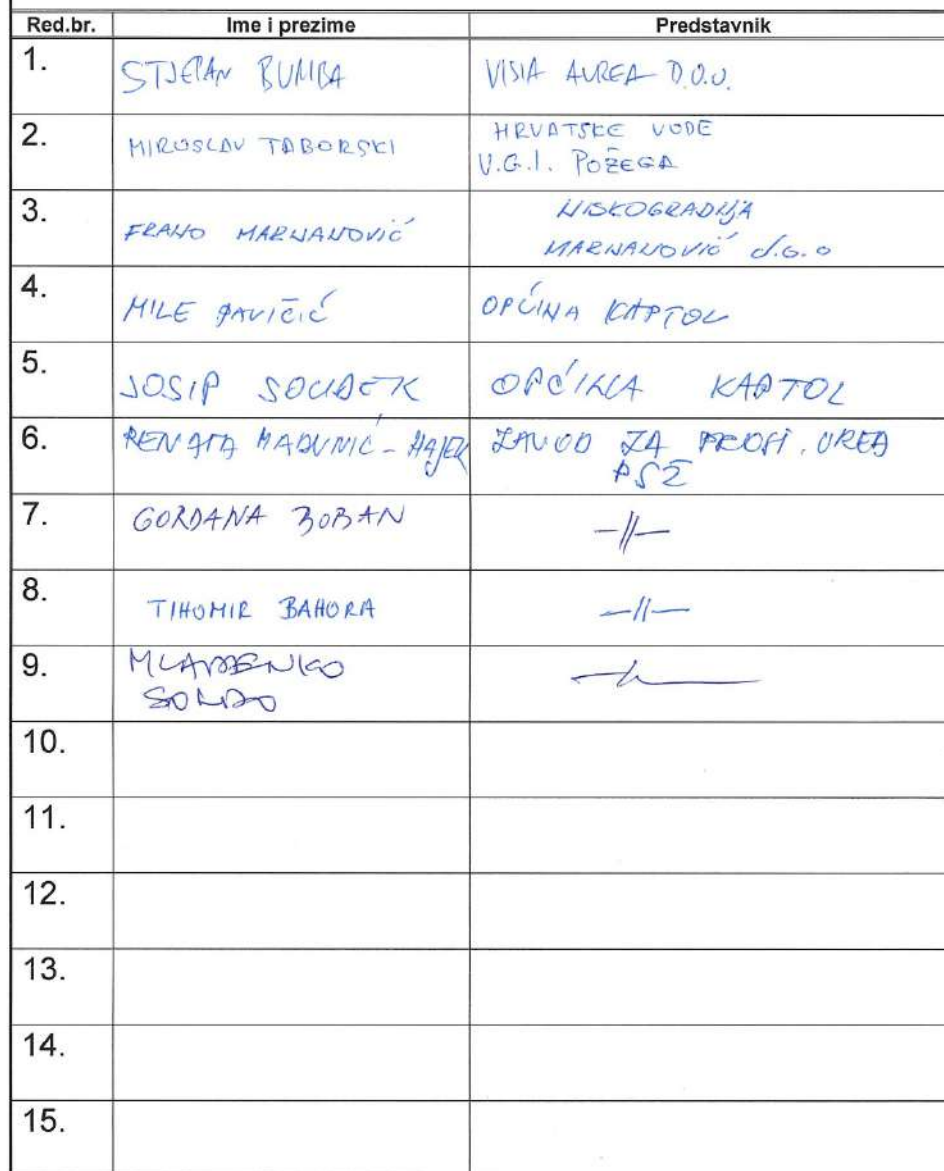 Red.br. Ime i prezime Predstavnik
1. STJEPAN BUMBA VISIA AUREA D.O.O.
2. MIROSLAV TABORSKI HRVATSKE VODE
V.G.I. POŽEGA
3. FRANO MARJANOVIĆ NISKOGRADNJA
MARJANOVIĆ d.o.o
4. MILE PAVIČIĆ OPĆINA KAPTOL
5. JOSIP SOUDEK OPĆINA KAPTOL
6. RENATA MADUNIĆ - HAJEK ZAVOD ZA PROST. UREĐ
PSŽ
7. GORDANA BOBAN -//-
8. TIHOMIR BAHORA -//-
9. MLADENKO
SOLDO
10.
11.
12.
13.
14.
15.